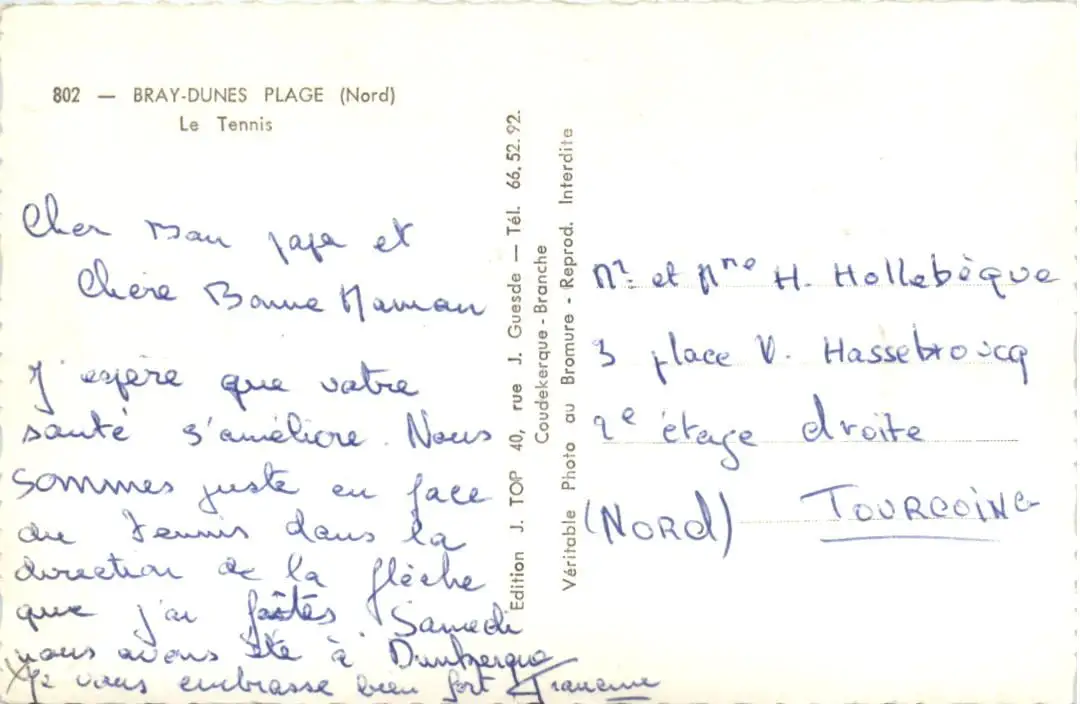 802 — BRAY-DUNES PLAGE (Nord)
Le Tennis
Cher Bon papa et
Chère Bonne Maman
J'espère que votre
santé s'améliore. Nous
sommes juste en face
du Tennis dans la
direction de la flèche
que j'ai faites Samedi
nous avons été à Dunkerque
Je vous embrasse bien fort Francine
Edition J. TOP 40, rue J. Guesde — Tél. 66.52.92.
Coudekerque-Branche
Véritable Photo au Bromure - Reprod. Interdite
Mr et Mme H. Hollebèque
3 place V. Hassebroucq
2e étage droite
(NORD) TOURCOING